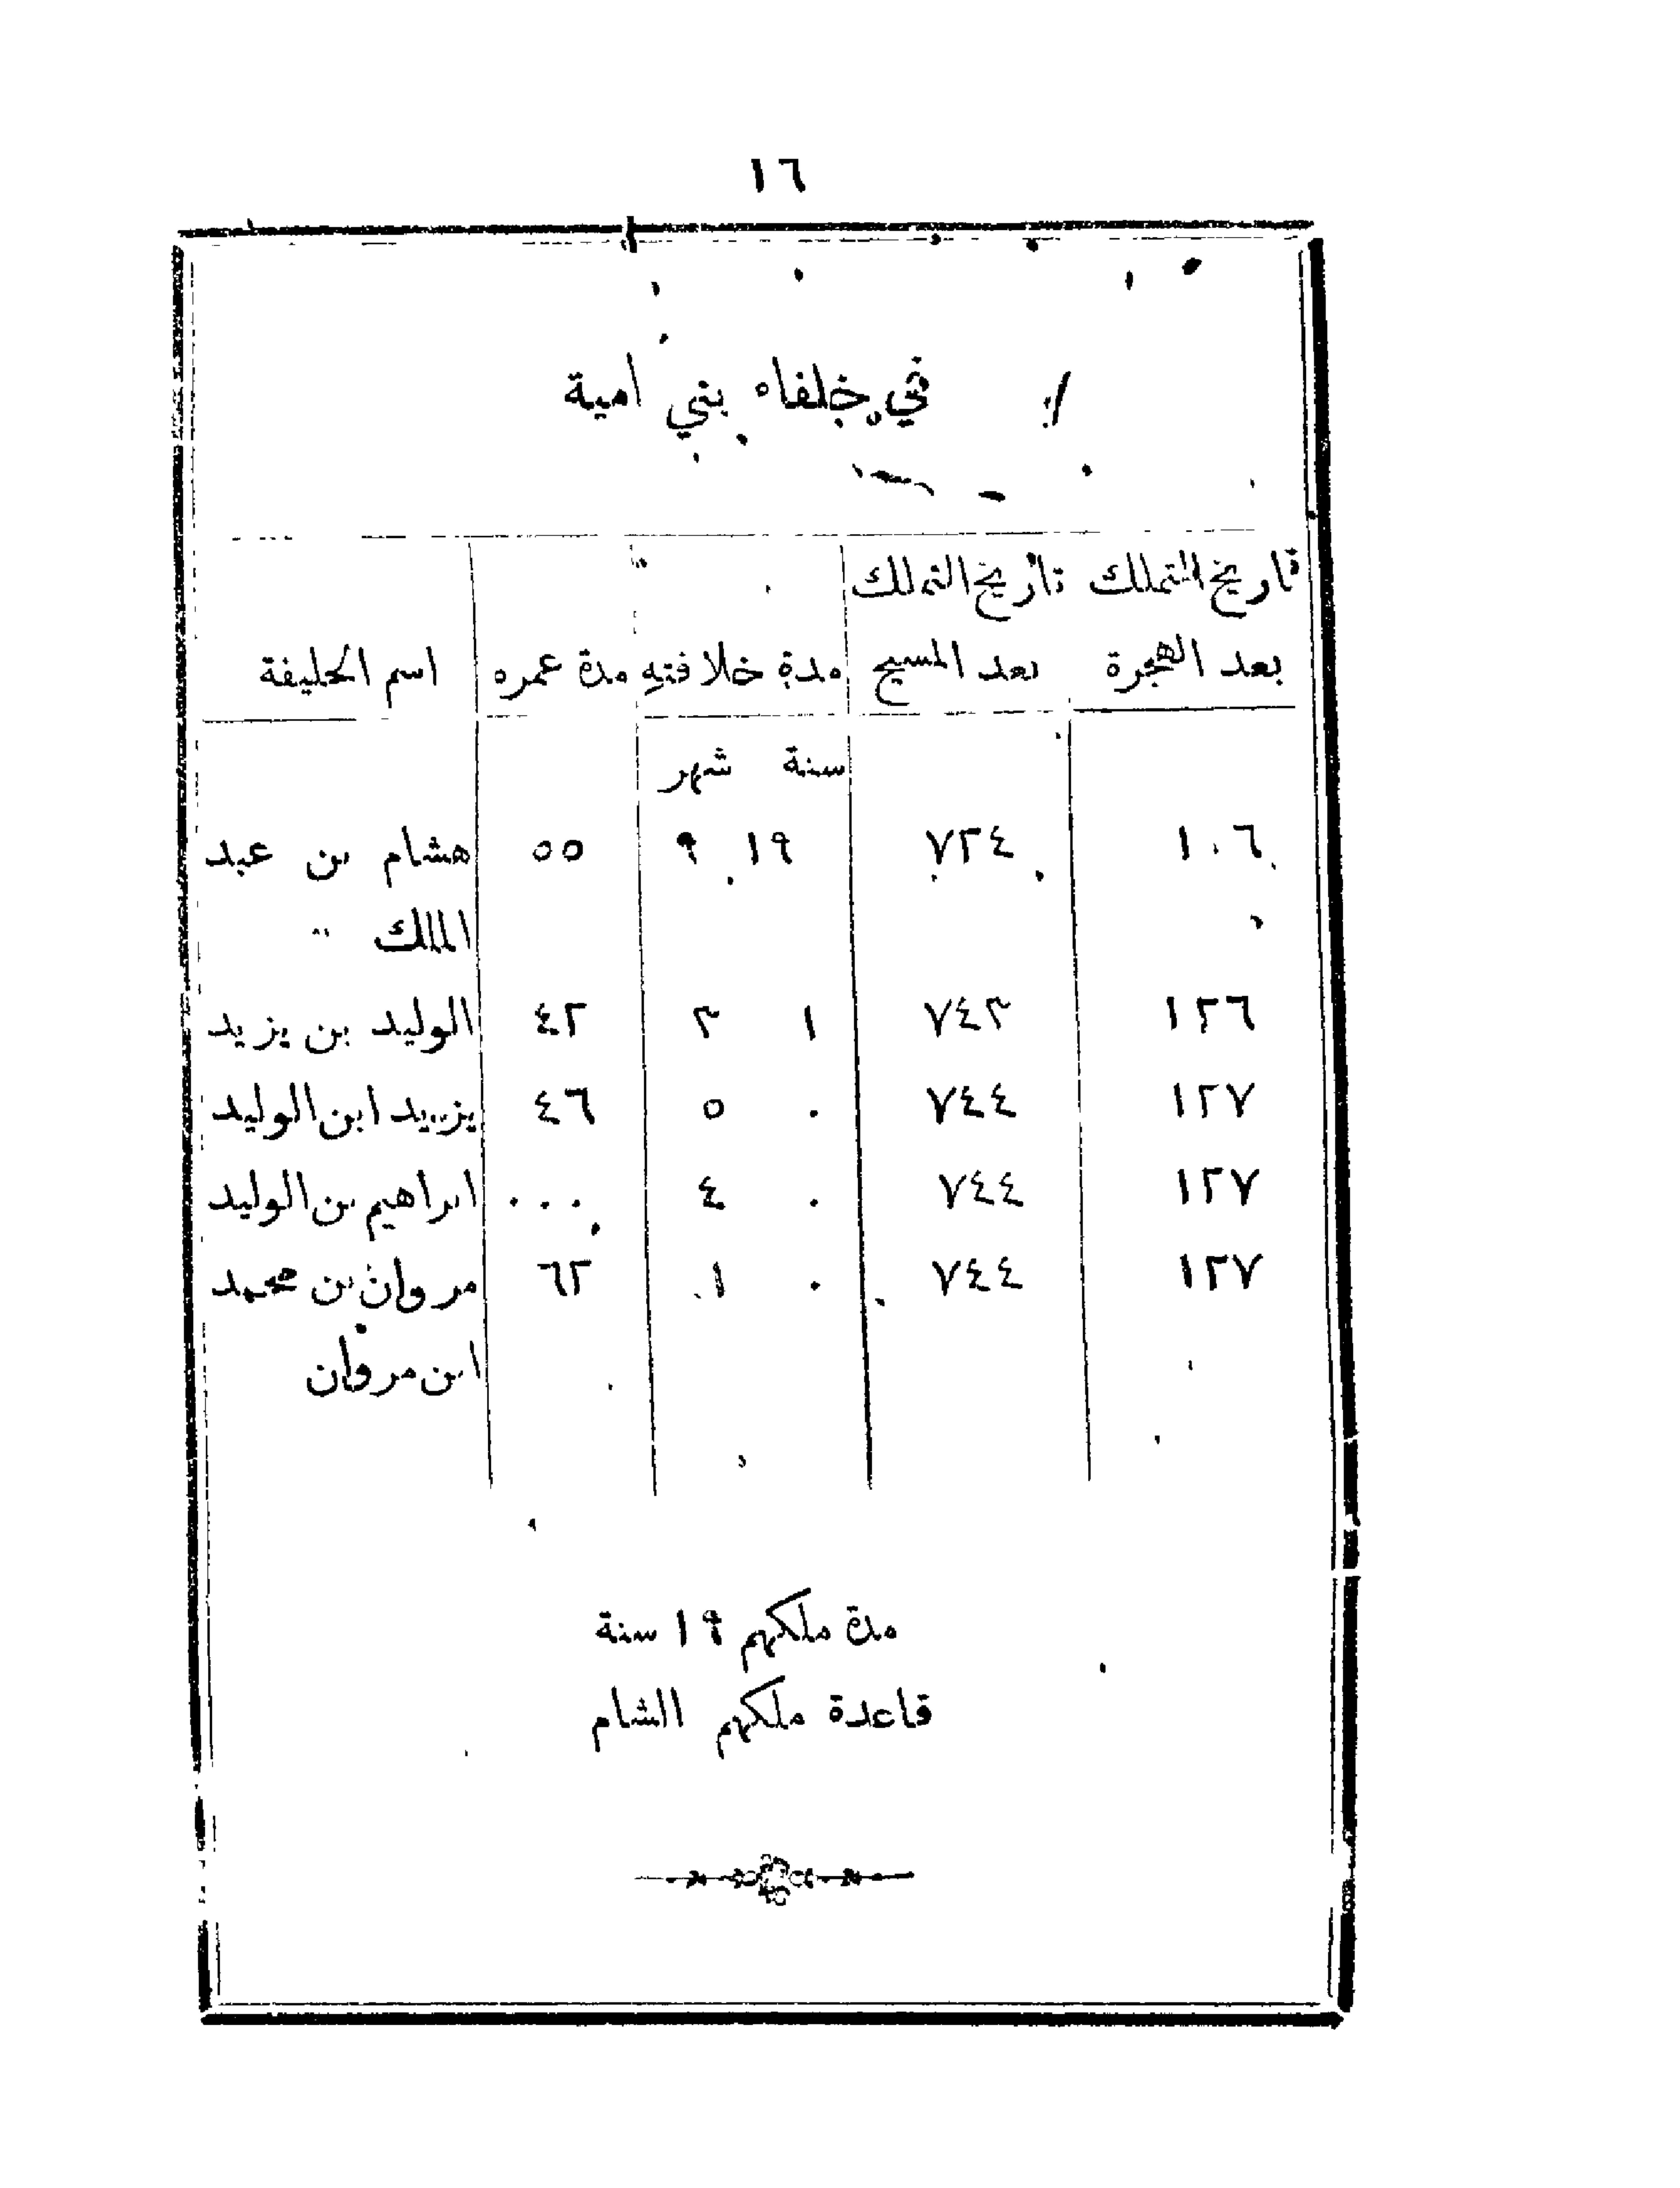 ١٦
في خلفاء بني امية
تاريخ التملك تاريخ التملك
بعد الهجرة بعد المسيح مدة خلافته مدة عمره اسم الخليفة
سنة شهر
١٠٦ ٧٢٤ ١٩ ٩ ٥٥ هشام بن عبد
الملك
١٢٦ ٧٤٣ ١ ٣ ٤٢ الوليد بن يزيد
١٢٧ ٧٤٤ ٠ ٥ ٤٦ يزيد ابن الوليد
١٢٧ ٧٤٤ ٠ ٤ ٠٠٠ ابراهيم بن الوليد
١٢٧ ٧٤٤ ٠ ١ ٦٢ مروان بن محمد
ابن مروان
مدة ملكهم ٩١ سنة
قاعدة ملكهم الشام